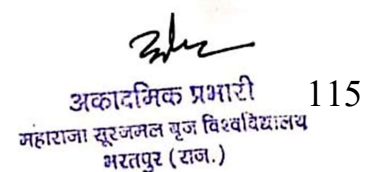 अकादमिक प्रभारी
115
महाराजा सूरजमल बृज विश्वविद्यालय
भरतपुर (राज.)